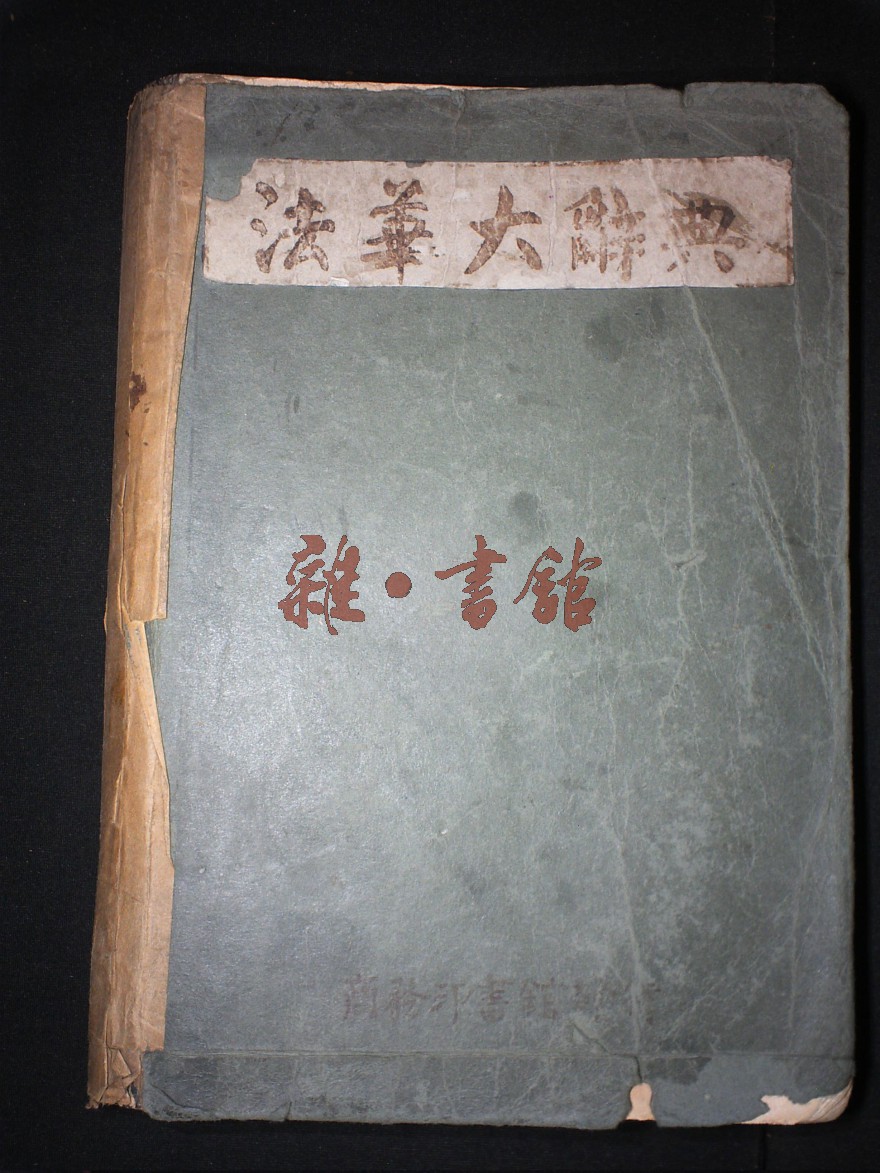 法華大辭典
雜·書館
商務印書館